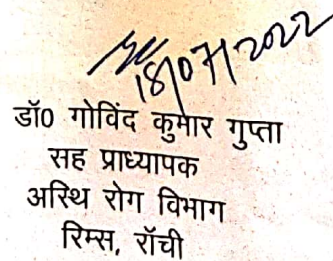 18/07/2022
डॉ0 गोविंद कुमार गुप्ता
सह प्राध्यापक
अस्थि रोग विभाग
रिम्स, रॉची